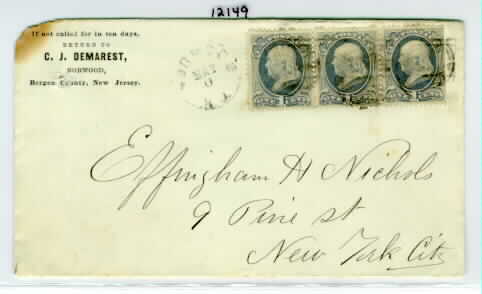 12149
If not called for in ten days,
RETURN TO
C. J. DEMAREST,
NORWOOD,
Bergen County, New Jersey.
NORWOOD
MAY
N.J.
Effingham H Nichols
9 Pine st
New York City